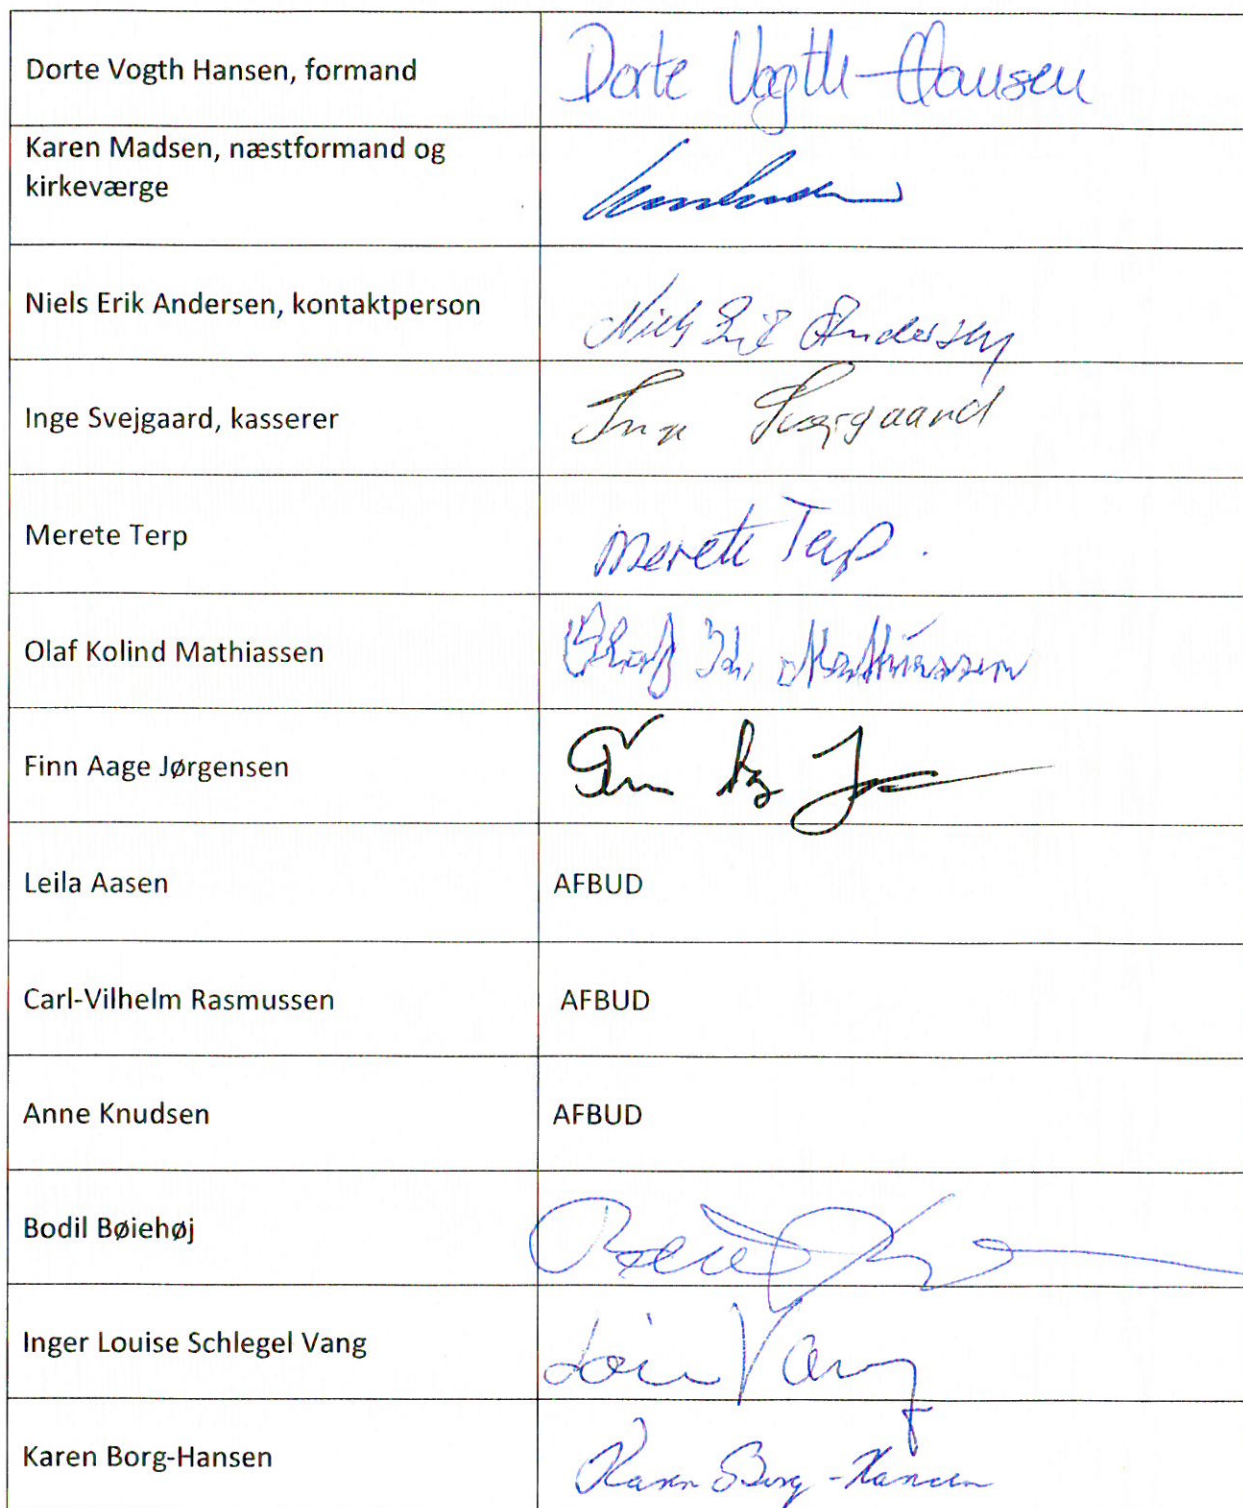 Dorte Vogth Hansen, formand
Dorte Vogth-Hansen
Karen Madsen, næstformand og
kirkeværge
Niels Erik Andersen, kontaktperson
Niels Erik Andersen
Inge Svejgaard, kasserer
Inge Svejgaard
Merete Terp
Merete Terp.
Olaf Kolind Mathiassen
Olaf Mathiassen
Finn Aage Jørgensen
Leila Aasen
AFBUD
Carl-Vilhelm Rasmussen
AFBUD
Anne Knudsen
AFBUD
Bodil Bøiehøj
Inger Louise Schlegel Vang
Vang
Karen Borg-Hansen
Karen Borg-Hansen